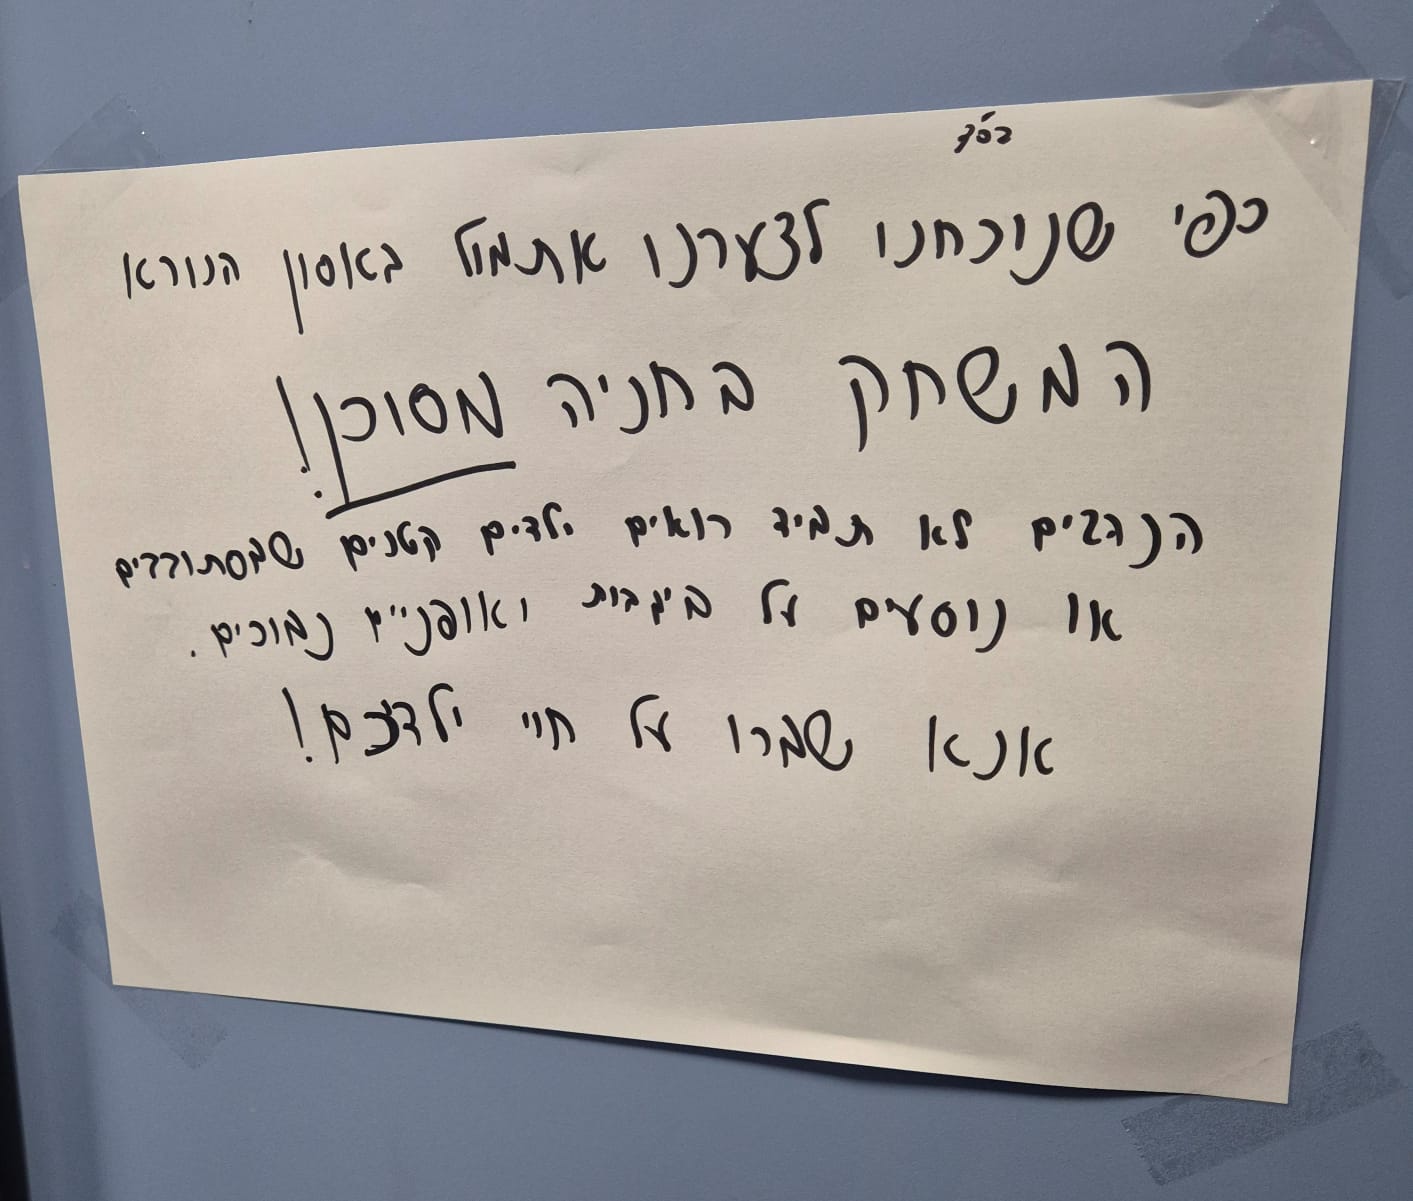 בס"ד
כפי שנוכחנו לצערנו אתמול באסון הנורא
המשחק בחניה מסוכן!
הנהגים לא תמיד רואים ילדים קטנים שמסתובבים
או נוסעים על בימבות ואופניים נמוכים.
אנא שמרו על חיי ילדכם!